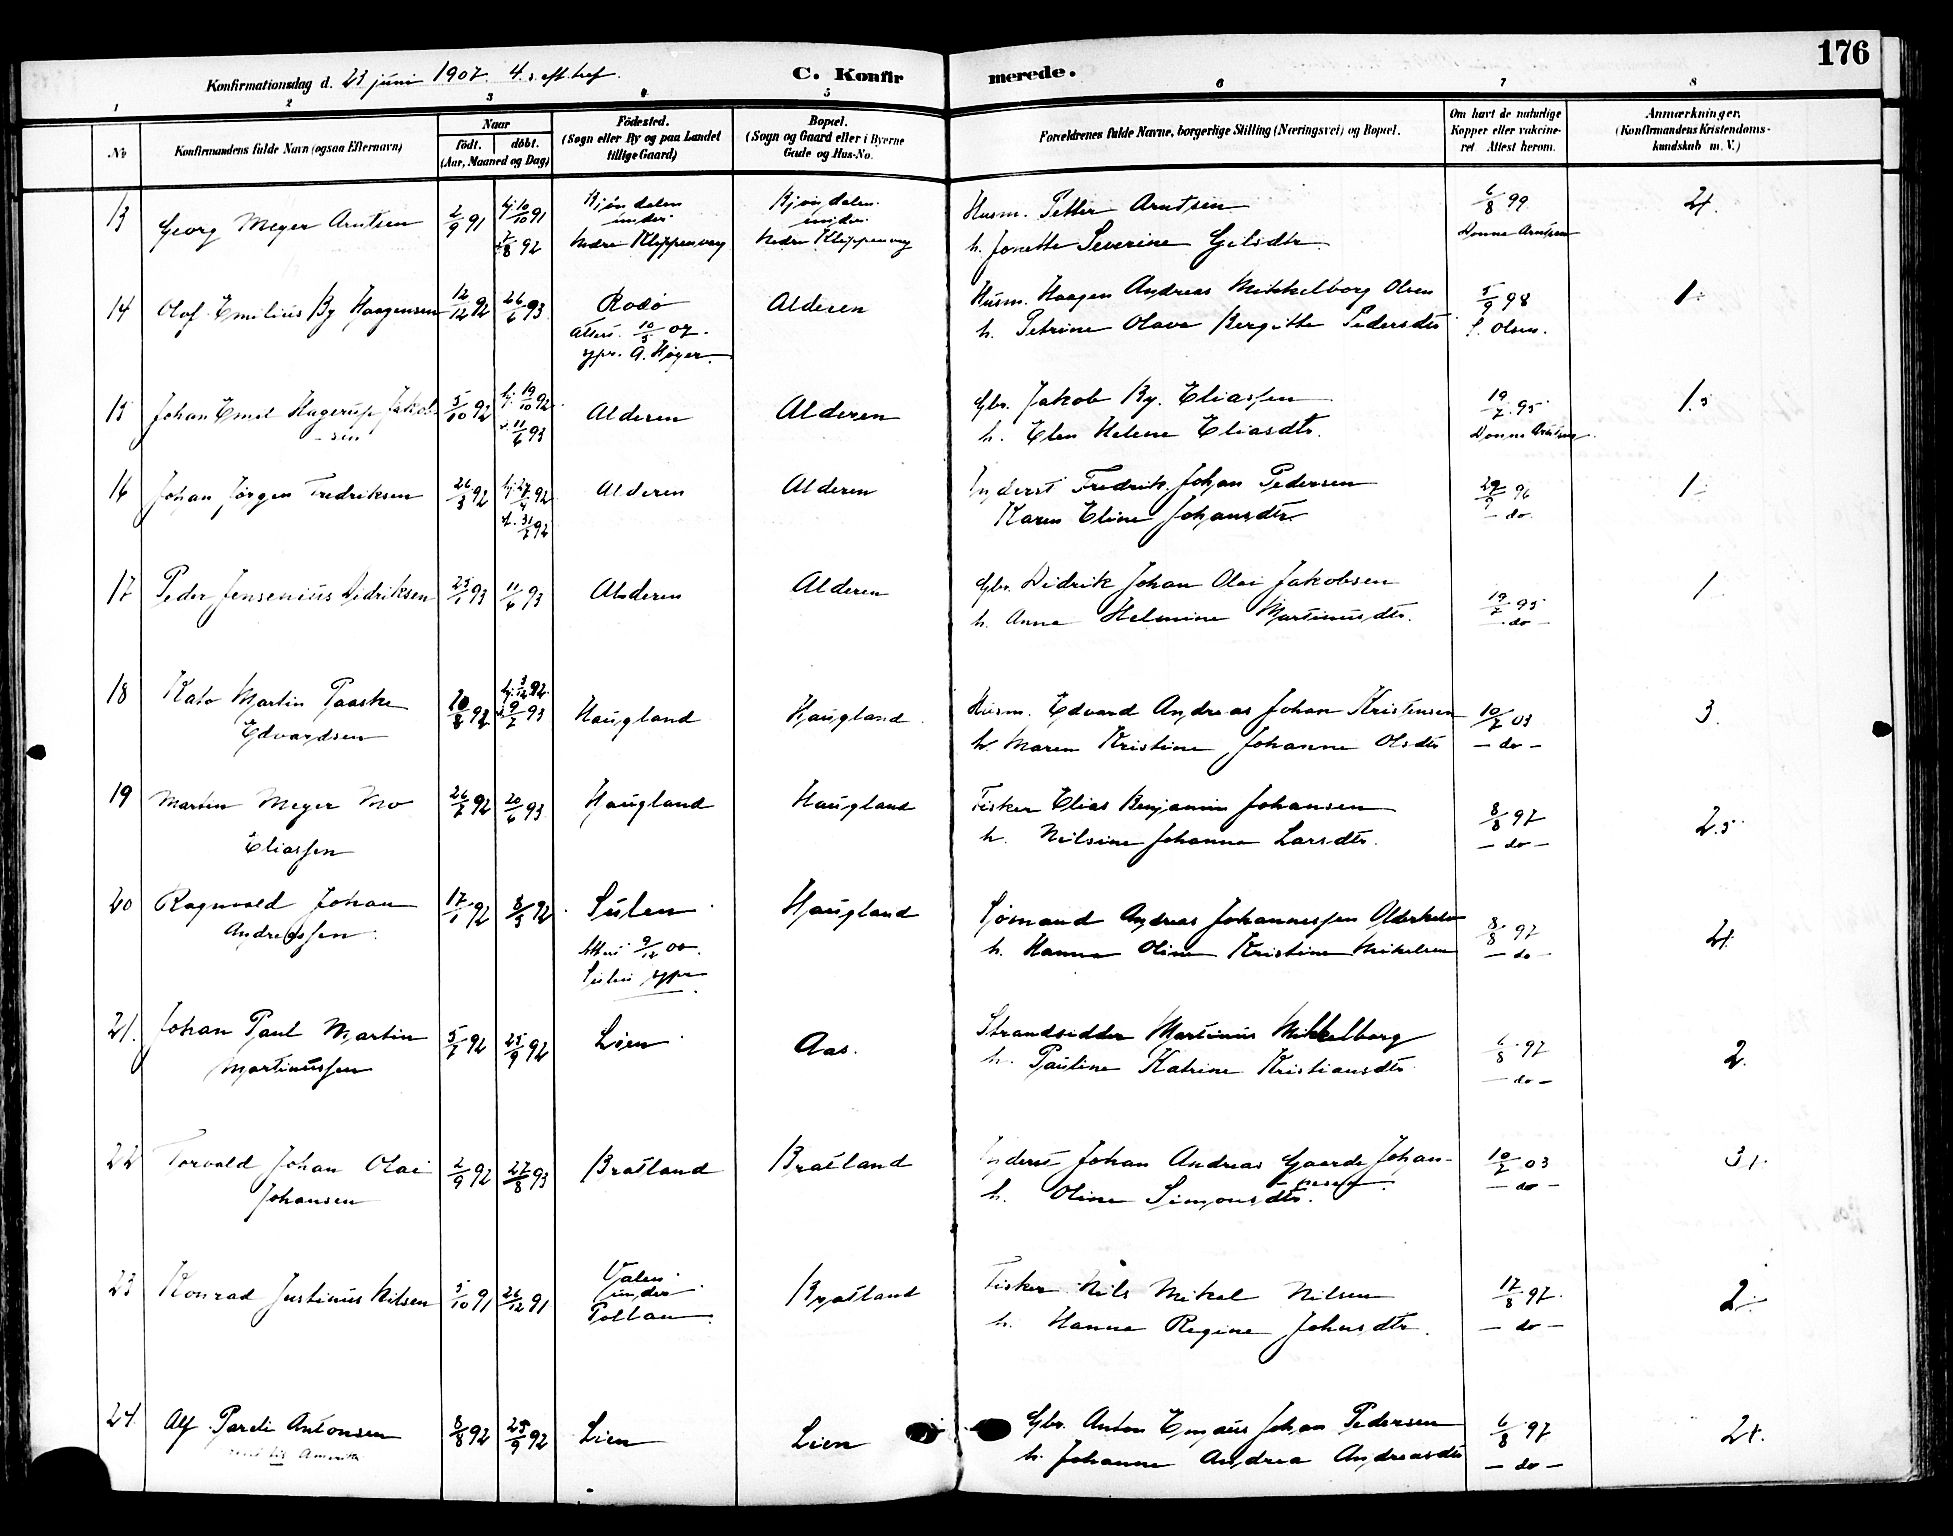 176
Konfirmationsdag d. 23 juni 1907. 4. s. eft. tref.
C. Konfirmerede.
1 2 3 4 5 6 7 8
No
Konfirmandens fulde Navn (ogsaa Efternavn)
Naar
födt. döbt.
(Aar, Maaned og Dag)
Födested.
(Sogn eller By og paa Landet
tillige Gaard)
Bopæl.
(Sogn og Gaard eller i Byerne
Gade og Hus-No.
Forældrenes fulde Navne, borgerlige Stilling (Næringsvei) og Bopæl.
Om havt de naturlige
Kopper eller vaccine-
ret Attest herom.
Anmærkninger,
(Konfirmandens Kristendoms-
kundskab m. V.)
13 Georg Meyer Arntsen 2/9 91 hj. 10/10 91 7/8 92
Bjøndalen
under
Nedre Klippenvaag
Bjøndalen
under
Nedre Klippenvaag
Husm. Petter Arntsen
h. Jonette Severine
6/8 99
Donna Arntsen
2.
14 Olof Emilius By Haagensen 12/12 92 26/6 93
Rødø
Attest. 10/5 07.
sgpr. A. Høyer.
Alderen
Husm. Haagen Andreas Mikkelborg Olsen
h. Petrine Olava Bergitte Pedersdtr
5/9 98
S. Olsen.
1
15 Johan Emil Hagerup Jakob-
-sen
5/10 92 hj. 19/10 92 11/6 93
Alderen
Alderen
Gbr. Jakob By. Eliassen
h. Elen Helene Eliasdtr.
19/7 95
Donna Arntsen
1.5
16 Johan Jørgen Fredriksen 26/3 92 hj. 27/4 92 31/7 92
Alderen
Alderen
Inderst Fredrik Johan Pedersen
Karen Eline Johansdtr.
29/9 96
- do
1
17 Peder Jensenius Didriksen 25/1 93 11/6 93
Alderen
Alderen
Gbr. Didrik Johan Olai Jakobsen
h. Anna Helmine Martinusdtr.
19/7 95
- do -
1
18 Kato Martin Paaske
Edvardsen
10/8 92 hj. 3/12 92 9/7 93
Haugland
Haugland
Husm. Edvard Andreas Johan Kristensen
h. Maren Kristine Johanne Olsdtr
10/7 03
- do -
3.
19 Martin Meyer Mo
Eliassen
26/7 92 20/6 93
Haugland
Haugland
Fisker Elias Benjamin Johansen
h. Nilsine Johanna Larsdtr.
8/8 97
- do -
2.5
20 Ragnvald Johan
Andreassen
17/1 92 8/5 92
Sulen
Attest 9/12 00.
Sulen sgpr
Haugland
Sjømand Andreas Johannessen
h. Hanna Oline Kristine Mikelsen
8/8 97
- do -
2
21. Johan Paul Martin
Martinussen
5/7 92 25/9 92
Lien
Aas.
Strandsidder Martinus Mikkelborg
h. Pauline Katrine Kristiansdtr
6/8 97
- do -
2.
22 Torvald Johan Olai
Johansen
2/9 92 27/8 93
Bratland
Bratland
Inderst Johan Andreas Gaarde Johan-
nesen
h. Oline Simonsdtr.
10/7 03
- do -
3
23 Konrad Justinus Nilsen 5/10 91 26/12 91
Valen
under
Bratland
Fisker Nils Mikal Nilsen
h. Hanna Regine Johnsdtr.
17/8 97.
- do -
2
24 Alf Pareli Antonsen
8/8 92 25/9 92
Lien
Lien
Gbr. Anton Johan Pedersen
h. Johanne Andrea Andreasdtr
6/8 97
- do -
2